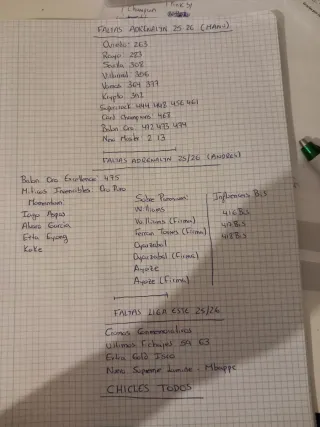 FALTAS ADRENALYN 25-26 (MANU)
Oviedo: 263
Rayo: 283
Sevilla 308
Villarreal 356
Vamos 364 377
Krypto: 392
Supercrack 444 448 456 461
Card Champions: 468
Balon Oro. 472 473 474
New Master 2 13
FALTAS ADRENALYN 25/26 (ANDRES)
Balon Oro Excellence: 475
Miticos Invencibles. Oro Puro
Momentum:
Iago Aspas
Alvaro Garcia
Etta Eyong
Koke
Sobre Premium:
Williams
Williams (Firma)
Ferran Torres (Firma)
Oyarzabal
Oyarzabal (Firma)
Ayoze
Ayoze (Firma)
Influencers Bis
416 Bis
417 Bis
418 Bis
FALTAS LIGA ESTE 25/26
Cromos Conmemorativos
Ultimos Fichajes 59 63
Extra Gold Isco
Nano Supreme Lamine - Mbappe
CHICLES TODOS